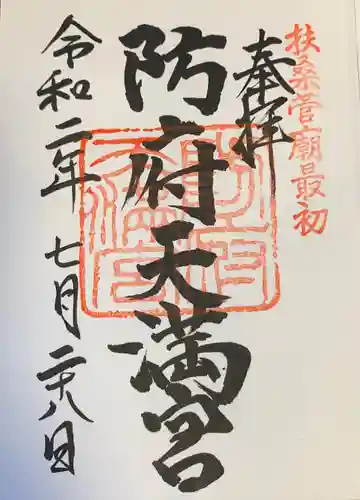 扶桑菅廟最初
奉拝
防府天満宮
令和二年 七月 二十八日